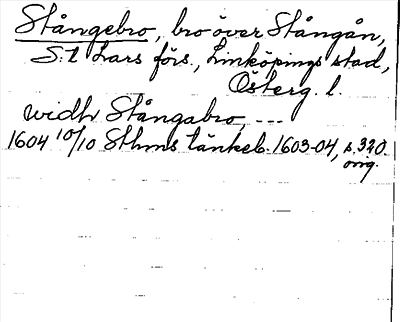 Stångebro, bro över Stångån,
S:t Lars förs., Linköpings stad,
Österg. l.
widh Stångabro, ---
1604 10/10 Sthms tänkeb. 1603-04, s. 320.
orig.